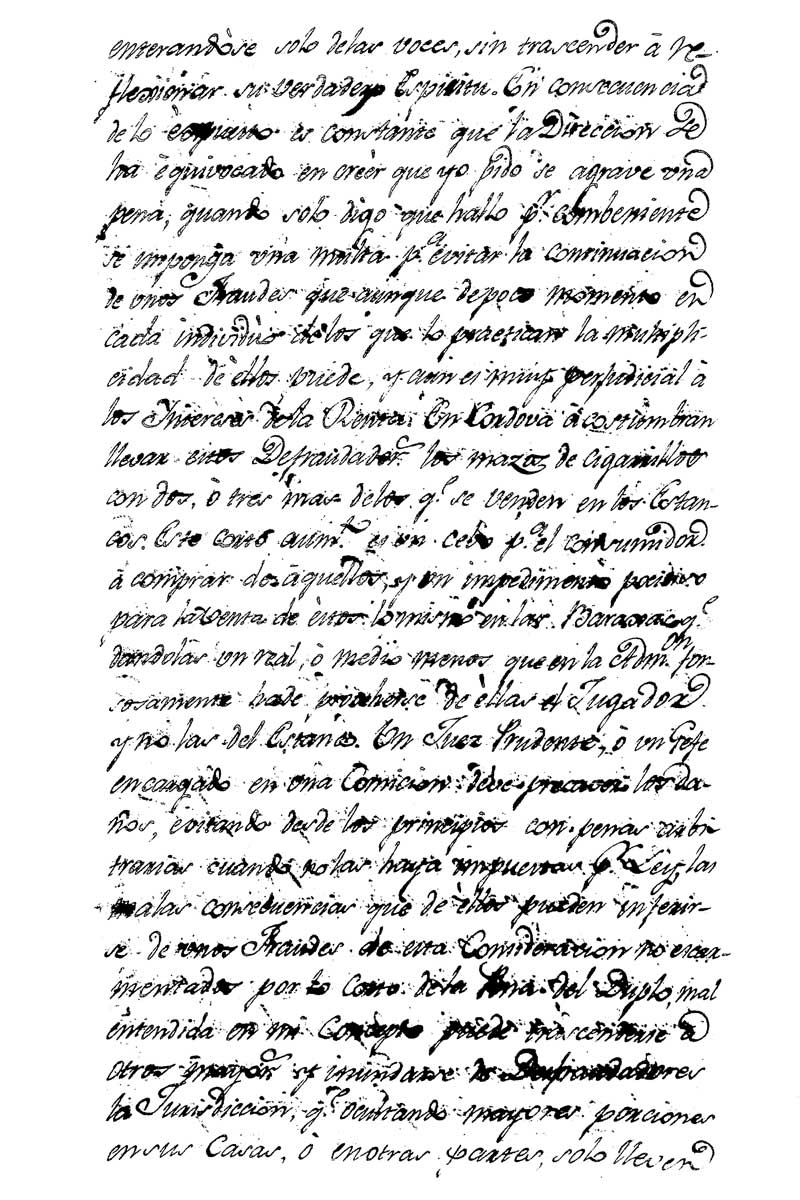 enterandòse solo delas voces, sin trascender â re-
flexiônar su verdadero Espiritu. En consecuencia
de lo expuesto es constante que la Direccion Se
ha equivocado en creèr que yo pido se agrave una
pena, quando solo digo que hallo p.r combeniente
se imponga una multa p.a evitar la continuacion
de unos Fraudes que aunque de poco momento en
cada individuo de los que lo practican la multipli-
cidad de èllos puede, y aun es muy perjudicial â
los Intereses dela Renta. En Cordova âcostumbran
llevar estos Defraudador.s los mazos de cigarrillos
con dos, ô tres mas delos q.e se venden en los Estan-
cos. Este corto aum.to es un cebo p.a el consumidor
â comprar de âquellos, y un impedimento preciso
para la venta de èstos lo mismo en las Baraxas q.e
dandolas un real, ô medio menos que en la Adm.on for-
sosamente hade proveherse de èllas el Jugador
y no las del Estanco. Un Juez Prudente, ô un Gefe
encargado en una Comicion dève precaver los da-
ños, èvitando desde los principios con penas arbi
trarias cuando no las haya impuestas p.r Ley, las
malas consecuencias que de èllos pueden inferir-
se de unos Fraudes de esta Consideracion no escar-
mentados por lo Corto de la Pena del Duplo, mal
êntendida en mi Concepto puede trascenderse â
otros mayor.s y inundarse de Defraudadores
la Jurisdiccion, q.e ocultando mayores porciones
en sus Casas, ô en otras partes, solo lleven